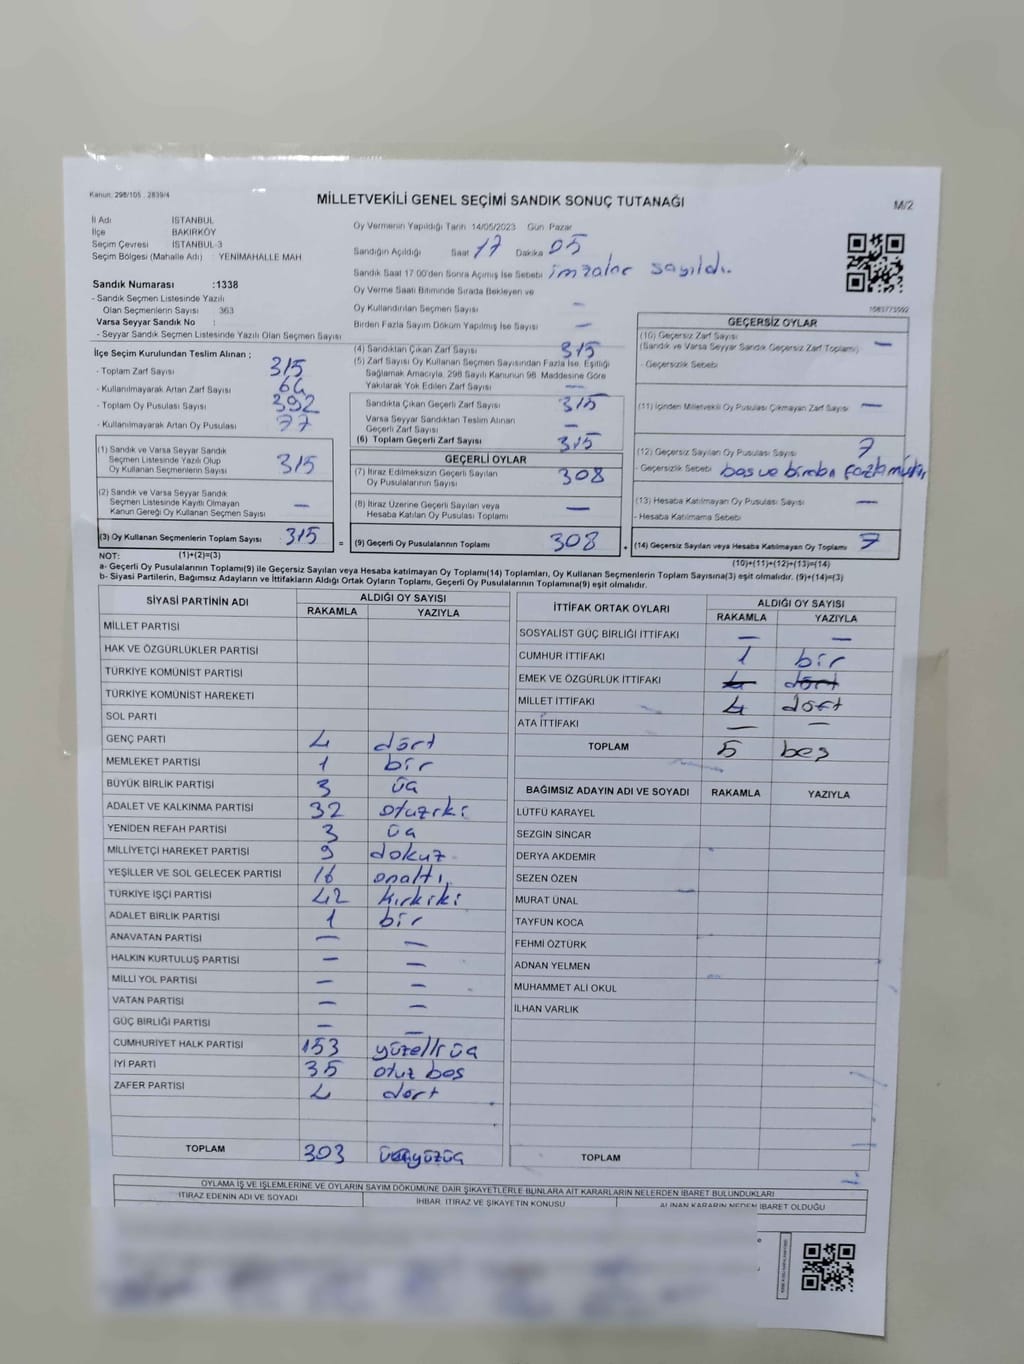 Kanun: 298/105 , 2839/4
MİLLETVEKİLİ GENEL SEÇİMİ SANDIK SONUÇ TUTANAĞI
M/2
İl Adı İSTANBUL
İlçe BAKIRKÖY
Seçim Çevresi İSTANBUL-3
Seçim Bölgesi (Mahalle Adı) : YENİMAHALLE MAH
Sandık Numarası :1338
- Sandık Seçmen Listesinde Yazılı
Olan Seçmenlerin Sayısı 363
Varsa Seyyar Sandık No :
- Seyyar Sandık Seçmen Listesinde Yazılı Olan Seçmen Sayısı
Oy Vermenin Yapıldığı Tarih 14/05/2023 Gün Pazar
Sandığın Açıldığı Saat 17 Dakika 05
Sandık Saat 17.00'den Sonra Açılmış İse Sebebi imzalar sayıldı.
Oy Verme Saati Bitiminde Sırada Bekleyen ve
Oy Kullandırılan Seçmen Sayısı –
Birden Fazla Sayım Döküm Yapılmış İse Sayısı –
İlçe Seçim Kurulundan Teslim Alınan ;
- Toplam Zarf Sayısı 315
- Kullanılmayarak Artan Zarf Sayısı
- Toplam Oy Pusulası Sayısı 392
- Kullanılmayarak Artan Oy Pusulası 77
(1) Sandık ve Varsa Seyyar Sandık
Seçmen Listesinde Yazılı Olup
Oy Kullanan Seçmenlerin Sayısı 315
(2) Sandık ve Varsa Seyyar Sandık
Seçmen Listesinde Kayıtlı Olmayan
Kanun Gereği Oy Kullanan Seçmen Sayısı –
(3) Oy Kullanan Seçmenlerin Toplam Sayısı 315 =
(1)+(2)=(3)
(4) Sandıktan Çıkan Zarf Sayısı 315
(5) Zarf Sayısı Oy Kullanan Seçmen Sayısından Fazla İse, Eşitliği
Sağlamak Amacıyla, 298 Sayılı Kanunun 98. Maddesine Göre
Yakılarak Yok Edilen Zarf Sayısı –
Sandıkta Çıkan Geçerli Zarf Sayısı 315
Varsa Seyyar Sandıktan Teslim Alınan
Geçerli Zarf Sayısı –
(6) Toplam Geçerli Zarf Sayısı 315
GEÇERLİ OYLAR
(7) İtiraz Edilmeksizin Geçerli Sayılan
Oy Pusulalarının Sayısı 308
(8) İtiraz Üzerine Geçerli Sayılan veya
Hesaba Katılan Oy Pusulası Toplamı –
(9) Geçerli Oy Pusulalarının Toplamı 308
1583773592
GEÇERSİZ OYLAR
(10) Geçersiz Zarf Sayısı –
(Sandık ve Varsa Seyyar Sandık Geçersiz Zarf Toplamı)
- Geçersizlik Sebebi
(11) İçinden Milletvekili Oy Pusulası Çıkmayan Zarf Sayısı –
(12) Geçersiz Sayılan Oy Pusulası Sayısı 7
- Geçersizlik Sebebi boş ve birden fazla mühür
(13) Hesaba Katılmayan Oy Pusulası Sayısı –
- Hesaba Katılmama Sebebi
(14) Geçersiz Sayılan veya Hesaba Katılmayan Oy Toplamı 7
(10)+(11)+(12)+(13)=(14)
NOT:
a- Geçerli Oy Pusulalarının Toplamı(9) ile Geçersiz Sayılan veya Hesaba katılmayan Oy Toplamı(14) Toplamları, Oy Kullanan Seçmenlerin Toplam Sayısına(3) eşit olmalıdır. (9)+(14)=(3)
b- Siyasi Partilerin, Bağımsız Adayların ve İttifakların Aldığı Ortak Oyların Toplamı, Geçerli Oy Pusulalarının Toplamına(9) eşit olmalıdır.
SİYASİ PARTİNİN ADI ALDIĞI OY SAYISI
RAKAMLA YAZIYLA
MİLLET PARTİSİ
HAK VE ÖZGÜRLÜKLER PARTİSİ
TÜRKİYE KOMÜNİST PARTİSİ
TÜRKİYE KOMÜNİST HAREKETİ
SOL PARTİ
GENÇ PARTİ 4 dört
MEMLEKET PARTİSİ 1 bir
BÜYÜK BİRLİK PARTİSİ 3 üç
ADALET VE KALKINMA PARTİSİ 32 otuziki
YENİDEN REFAH PARTİSİ 3 üç
MİLLİYETÇİ HAREKET PARTİSİ 9 dokuz
YEŞİLLER VE SOL GELECEK PARTİSİ 16 onaltı
TÜRKİYE İŞÇİ PARTİSİ 42 kırkiki
ADALET BİRLİK PARTİSİ 1 bir
ANAVATAN PARTİSİ – –
HALKIN KURTULUŞ PARTİSİ – –
MİLLİ YOL PARTİSİ – –
VATAN PARTİSİ – –
GÜÇ BİRLİĞİ PARTİSİ – –
CUMHURİYET HALK PARTİSİ 153 yüzelliüç
İYİ PARTİ 35 otuz beş
ZAFER PARTİSİ 4 dört
TOPLAM 303 üçyüzüç
İTTİFAK ORTAK OYLARI ALDIĞI OY SAYISI
RAKAMLA YAZIYLA
SOSYALİST GÜÇ BİRLİĞİ İTTİFAKI – –
CUMHUR İTTİFAKI 1 bir
EMEK VE ÖZGÜRLÜK İTTİFAKI 4 dört
MİLLET İTTİFAKI 4 dört
ATA İTTİFAKI – –
TOPLAM 5 beş
BAĞIMSIZ ADAYIN ADI VE SOYADI RAKAMLA YAZIYLA
LÜTFÜ KARAYEL
SEZGİN SİNCAR
DERYA AKDEMİR
SEZEN ÖZEN
MURAT ÜNAL
TAYFUN KOCA
FEHMİ ÖZTÜRK
ADNAN YELMEN
MUHAMMET ALİ OKUL
İLHAN VARLIK
TOPLAM
OYLAMA İŞ VE İŞLEMLERİNE VE OYLARIN SAYIM DÖKÜMÜNE DAİR ŞİKAYETLERLE BUNLARA AİT KARARLARIN NELERDEN İBARET BULUNDUKLARI
İTİRAZ EDENİN ADI VE SOYADI İHBAR, İTİRAZ VE ŞİKAYETİN KONUSU ALINAN KARARIN NEDEN İBARET OLDUĞU